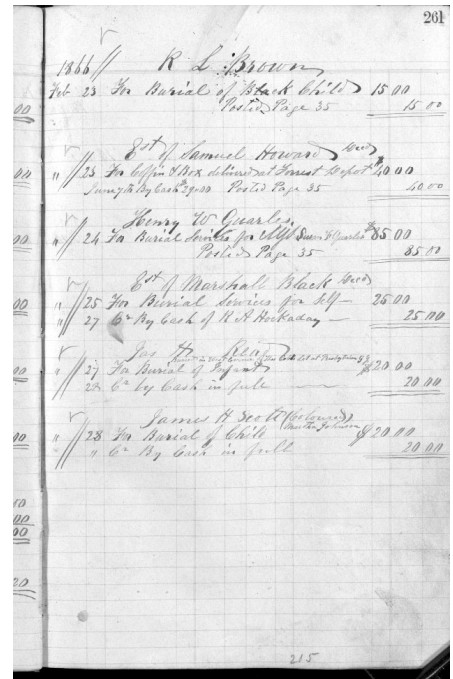 261
1866 R L Brown
Feb 23 For Burial of Black Child 15 00
Posted Page 35 15 00
Est of Samuel Howard Decd
" 23 For Coffin & Box delivered at Forrest Depot $40.00
By Cash $29.00 Posted Page 35 40 00
Henry W Quarles
" 24 For Burial Services for Quarles $85 00
Posted Page 35 85 00
Est of Marshall Black Decd
" 25 For Burial Services for Self 25 00
" 27 Cr By Cash of R A Hockaday 25 00
Jas
" 27 For Burial of Infant $20.00
" 28 Cr by Cash in full 20 00
James H Scott (Coloured)
" 28 For Burial of Child Johnson $20.00
" " Cr By Cash in full 20 00
215
00
00
00
00
00
50
00
00
20